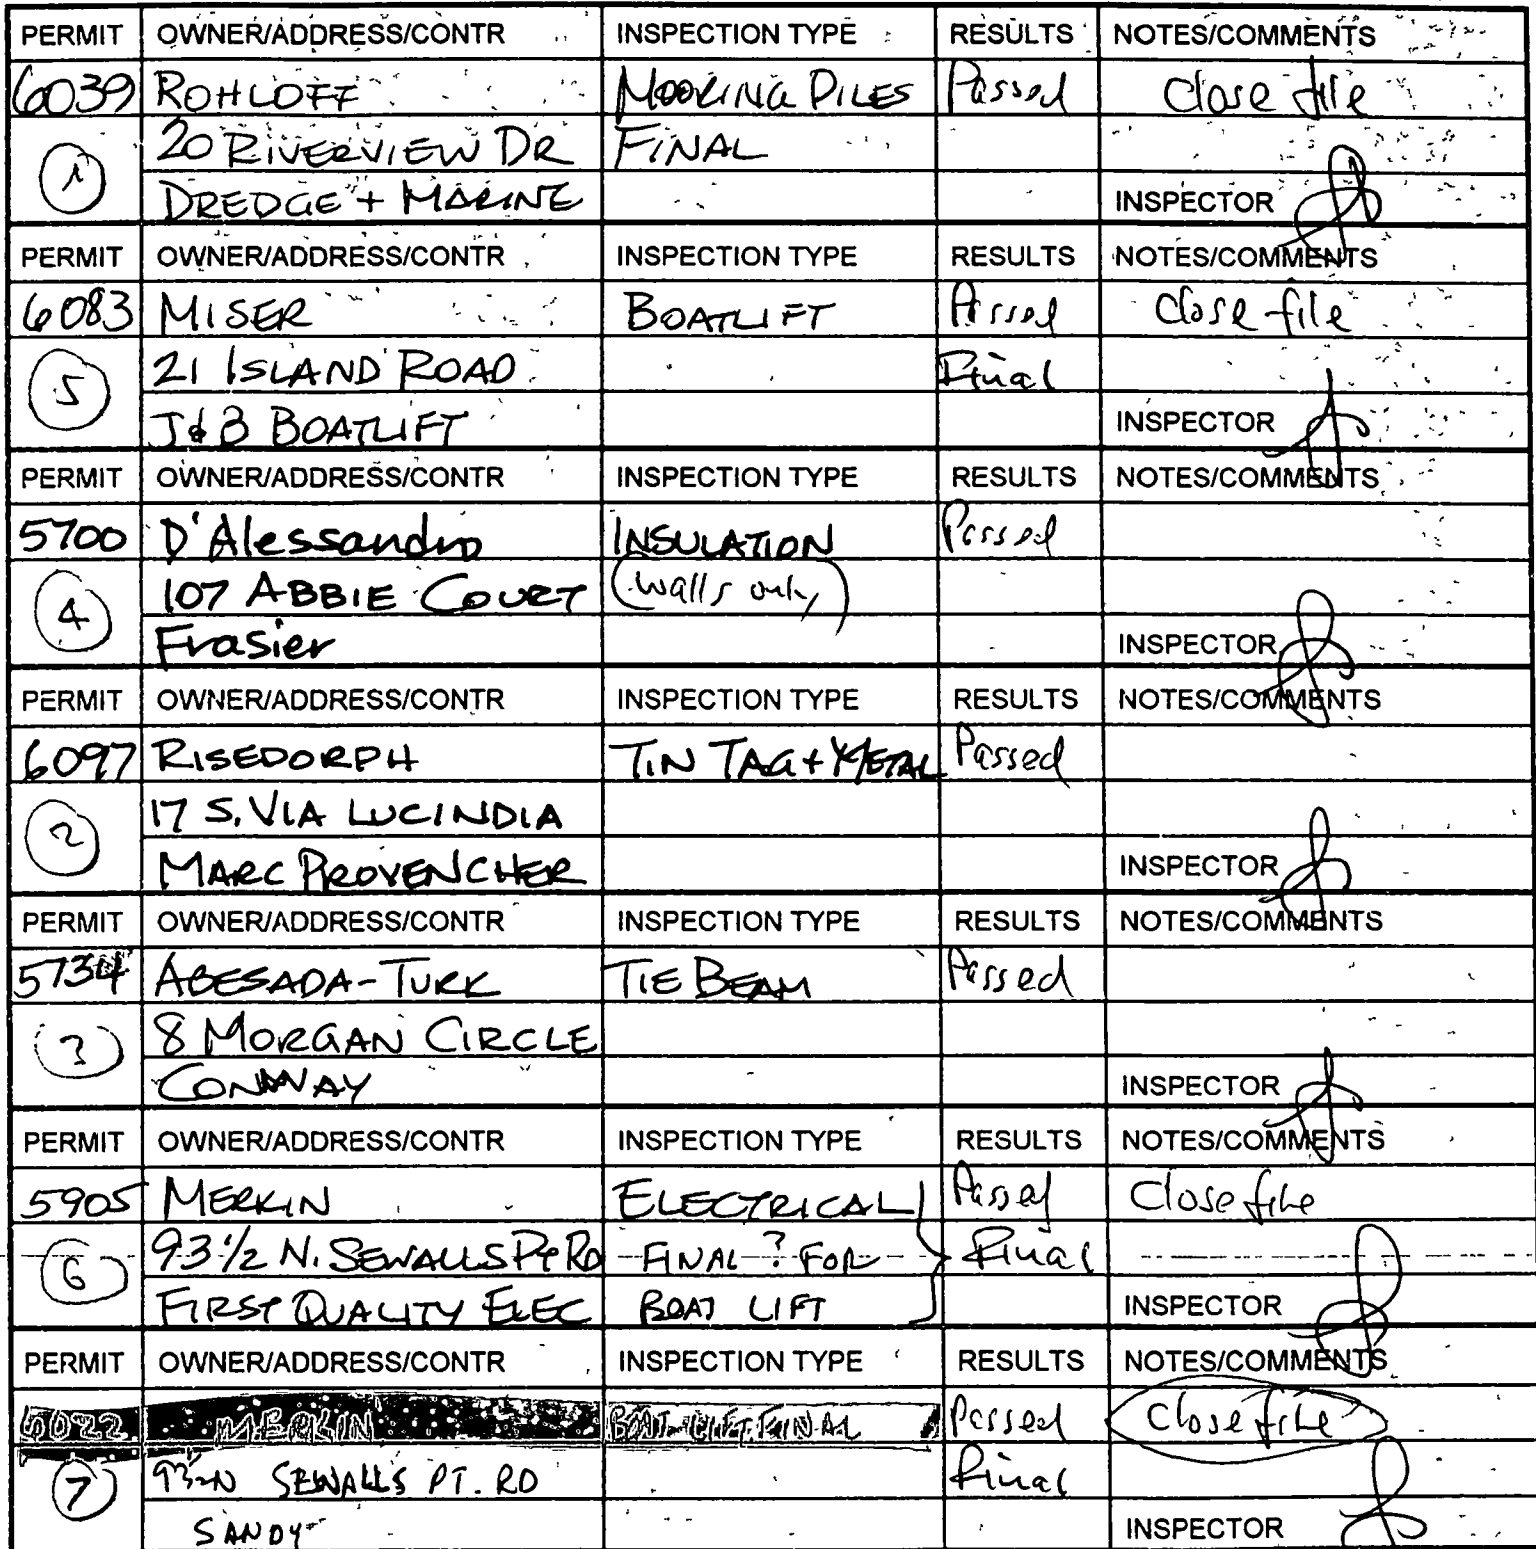 PERMIT OWNER/ADDRESS/CONTR INSPECTION TYPE RESULTS NOTES/COMMENTS
6039 ROHLOFF MOORING PILES Passed Close file
1 20 RIVERVIEW DR FINAL
DREDGE + MARINE INSPECTOR
PERMIT OWNER/ADDRESS/CONTR INSPECTION TYPE RESULTS NOTES/COMMENTS
6083 MISER BOATLIFT Passed Close file
5 21 ISLAND ROAD Final
J&B BOATLIFT INSPECTOR
PERMIT OWNER/ADDRESS/CONTR INSPECTION TYPE RESULTS NOTES/COMMENTS
5700 D'Alessandro INSULATION Passed
4 107 ABBIE COURT (walls only)
Frasier INSPECTOR
PERMIT OWNER/ADDRESS/CONTR INSPECTION TYPE RESULTS NOTES/COMMENTS
6097 RISEDORPH TIN TAG + METAL Passed
2 17 S. VIA LUCINDIA
MARC PROVENCHER INSPECTOR
PERMIT OWNER/ADDRESS/CONTR INSPECTION TYPE RESULTS NOTES/COMMENTS
5734 ABESADA-TURK TIE BEAM Passed
3 8 MORGAN CIRCLE
CONWAY INSPECTOR
PERMIT OWNER/ADDRESS/CONTR INSPECTION TYPE RESULTS NOTES/COMMENTS
5905 MERKIN ELECTRICAL Passed Close file
6 93 1/2 N. SEWALLS Pt RD FINAL ? FOR Final
FIRST QUALITY ELEC BOAT LIFT INSPECTOR
PERMIT OWNER/ADDRESS/CONTR INSPECTION TYPE RESULTS NOTES/COMMENTS
6022 MERKIN BOAT LIFT FINAL Passed Close file
7 SEWALLS PT. RD Final
SANDY INSPECTOR